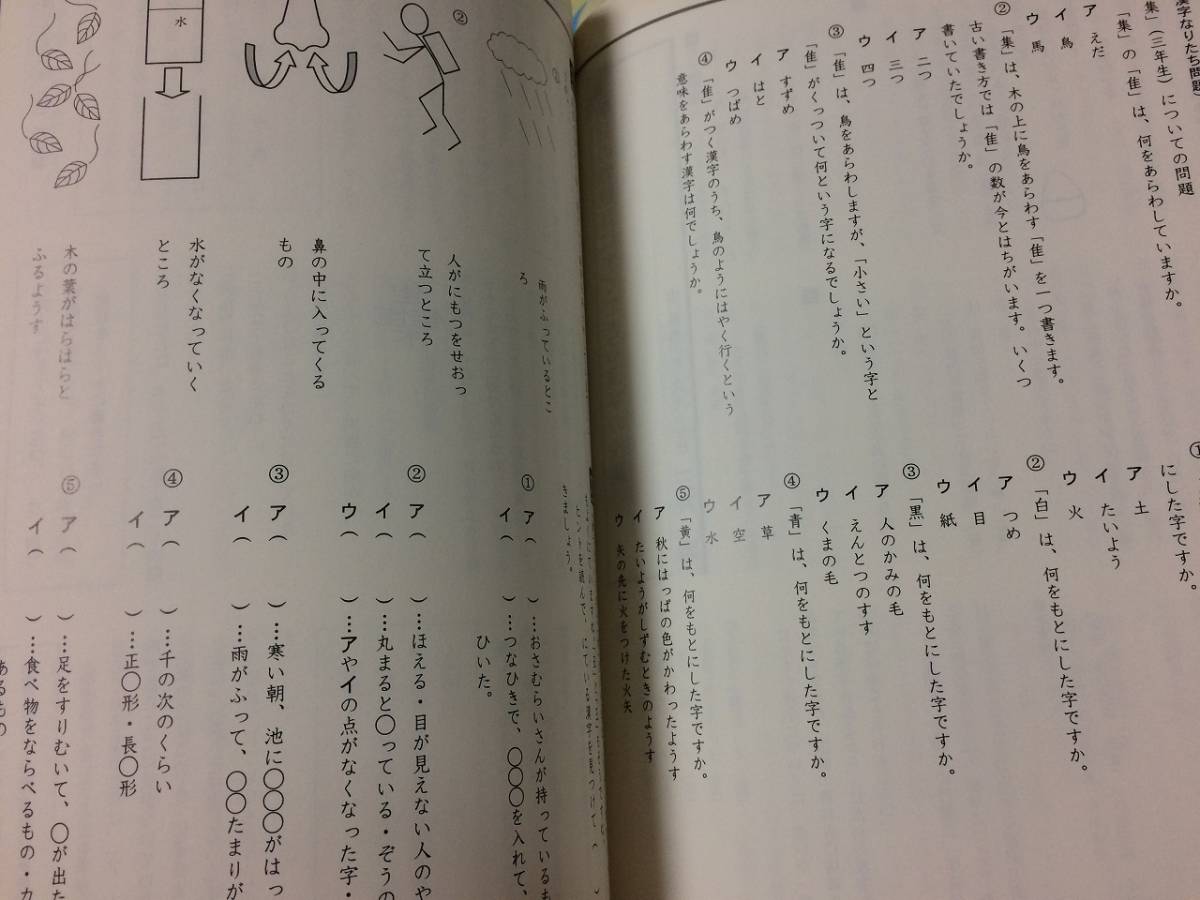 漢字なりたち問題）
集」（三年生）についての問題
「集」の「隹」は、何をあらわしていますか。
ア　えだ
イ　鳥
ウ　馬
② 「集」は、木の上に鳥をあらわす「隹」を一つ書きます。
古い書き方では「隹」の数が今とはちがいます。いくつ
書いていたでしょうか。
ア　二つ
イ　三つ
ウ　四つ
③ 「隹」は、鳥をあらわしますが、「小さい」という字と
「隹」がくっついて何という字になるでしょうか。
ア　すずめ
イ　はと
ウ　つばめ
④ 「隹」がつく漢字のうち、鳥のようにはやく行くという
意味をあらわす漢字は何でしょうか。
①
にした字ですか。
ア　土
イ　たいよう
ウ　火
② 「白」は、何をもとにした字ですか。
ア　つめ
イ　目
ウ　紙
③ 「黒」は、何をもとにした字ですか。
ア　人のかみの毛
イ　えんとつのすす
ウ　くまの毛
④ 「青」は、何をもとにした字ですか。
ア　草
イ　空
ウ　水
⑤ 「黄」は、何をもとにした字ですか。
ア　秋にはっぱの色がかわったようす
イ　たいようがしずむときのようす
ウ　矢の先に火をつけた火矢
雨がふっているとこ
ろ
②
人がにもつをせおっ
て立つところ
鼻の中に入ってくる
もの
水
水がなくなっていく
ところ
木の葉がはらはらと
ふるようす
ヒントを読んで、にている漢字を見つけて、（
きましょう。
① ア（　　）…おさむらいさんが持っているも
イ（　　）…つなひきで、〇〇〇を入れて、
ひいた。
② ア（　　）…ほえる・目が見えない人のや
イ（　　）…丸まると〇っている・ぞうの
ウ（　　）…アやイの点がなくなった字・
③ ア（　　）…寒い朝、池に〇〇〇がはっ
イ（　　）…雨がふって、〇〇たまりが
④ ア（　　）…千の次のくらい
イ（　　）…正〇形・長〇形
⑤ ア（　　）…足をすりむいて、〇が出た
イ（　　）…食べ物をならべるもの・カ
あるもの